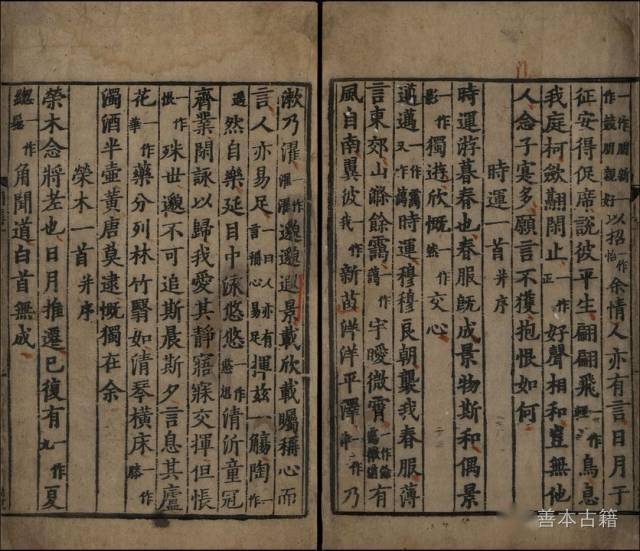 作親好以招一作怡余情人亦有言日月于
征安得促席說彼平生翩翩飛鳥息
我庭柯斂翮閑止一作正好聲相和豈無他
人念子寔多願言不獲抱恨如何
時運一首并序
時運游暮春也春服既成景物斯和偶景
一作影獨遊欣慨一作然交心
邁邁一作又作時運穆穆良朝襲我春服薄
言東郊山滌餘靄一作藹宇曖微霄一作有
風自南翼彼一作我新苗洋洋平澤一作乃
漱乃濯一作濯濯邈邈遐景載欣載矚稱心而
言人亦易足一曰人亦有言稱心易足揮茲一觴陶一作
遥然自樂延目中流悠悠清沂童冠
齊業閑詠以歸我愛其靜寤寐交揮但悵
一作恨殊世邈不可追斯晨斯夕言息其廬
花一作華藥分列林竹翳如清琴橫床一作膝
濁酒半壺黃唐莫逮慨獨在余
榮木一首并序
榮木念將老也日月推遷已復有一作九夏
總一作角聞道白首無成
善本古籍